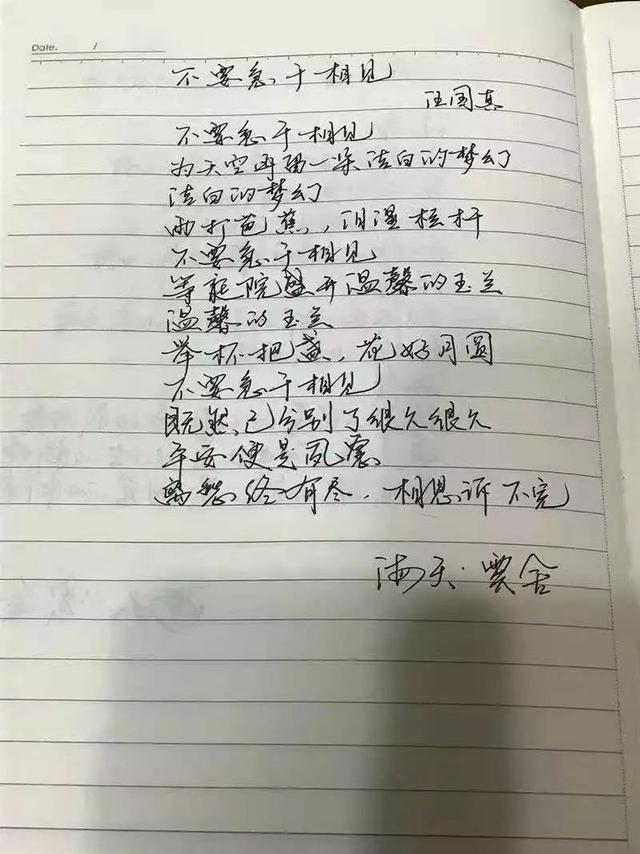 Date. /
不要急于相见
汪国真
不要急于相见
为天空再留一朵洁白的梦幻
洁白的梦幻
雨打芭蕉，泪湿栏杆
不要急于相见
等庭院盛开温馨的玉兰
温馨的玉兰
举杯把盏，花好月圆
不要急于相见
既然已分别了很久很久
平安便是夙愿
离愁终有尽，相思诉不完
海天·雲舍